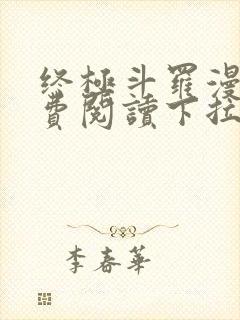 终極斗羅漫
費閱讀下拉
李春華